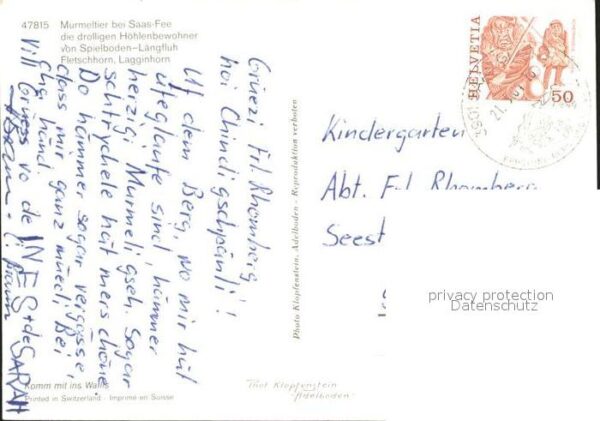 47815 Murmeltier bei Saas-Fee
die drolligen Höhlenbewohner
von Spielboden-Längfluh
Fletschhorn, Lagginhorn
Grüezi Frl. Rhomberg,
hoi Chindigschpänli!
Uf dem Berg, wo mir hüt
ufeglaufe sind, hämmer
herzigi Murmeli gseh. Sogar
schtrychele hät mers chöne.
Do hämmer sogar vergässe,
dass mir ganz müedi Bei
gha händ.
Vill Grüess vo de INES + de SARAH
Komm mit ins Wallis
Printed in Switzerland - Imprimé en Suisse
Photo Klopfenstein, Adelboden - Reproduktion verboten
Phot Klopfenstein
Adelboden
HELVETIA
50
Kindergarten
Abt. Frl. Rhomberg
Seest
privacy protection
Datenschutz